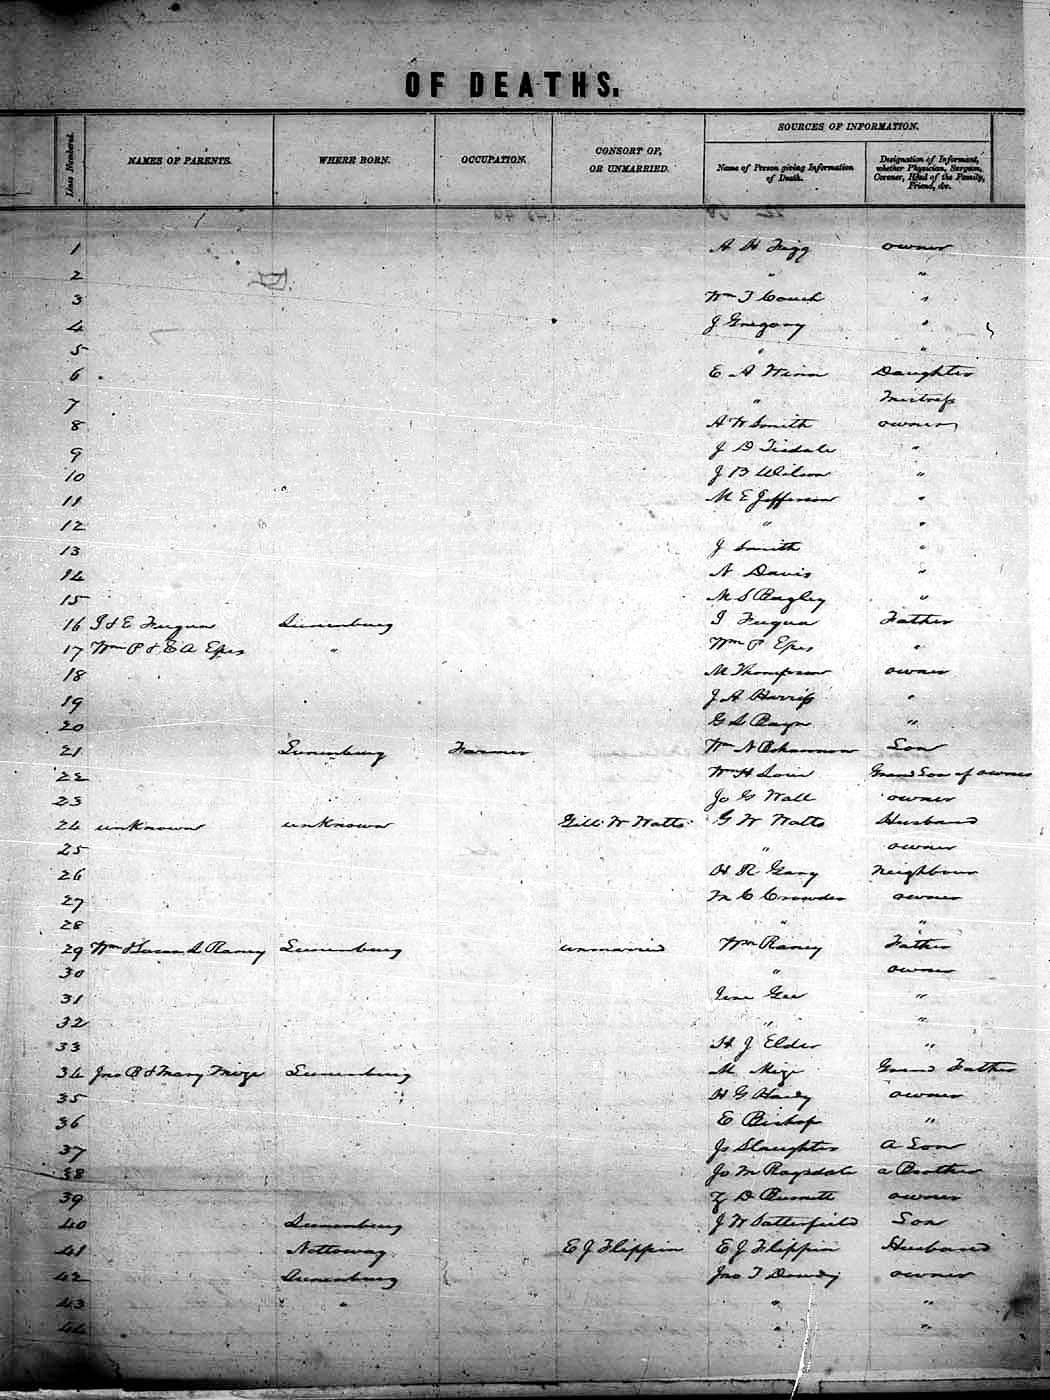 OF DEATHS.
SOURCES OF INFORMATION.
Lines Numbered. NAMES OF PARENTS. WHERE BORN. OCCUPATION. CONSORT OF, OR UNMARRIED. Name of Person giving Information of Death. Designation of Informant, whether Physician, Surgeon, Coroner, Head of the Family, Friend, &c.
1 A H owner
2 " "
3 Wm T Couch "
4 J Gregory "
5 " "
6 E A Winn Daughter
7 " Mistress
8 A W Smith owner
9 J D Tisdale "
10 J B Wilson "
11 M E Jefferson "
12 " "
13 J Smith "
14 N Davis "
15 M S Bagley "
16 J & E Fuqua Lunenburg J Fuqua Father
17 Wm P & E A Epes " Wm P Epes "
18 M Thompson owner
19 J A Harriss "
20 G S "
21 Lunenburg Farmer Wm N Bohannon Son
22 Wm H Grand Son of owner
23 Jo G Wall owner
24 unknown unknown Gill W Watts G W Watts Husband
25 " owner
26 H R Gary Neighbour
27 M C Crowder owner
28 " "
29 Wm & Susan A Raney Lunenburg unmarried Wm Raney Father
30 " owner
31 Gee "
32 " "
33 H J Elder "
34 Jno B & Mary Mize Lunenburg M Mize Grand Father
35 H G Hardy owner
36 E Bishop "
37 Jo Slaughter a Son
38 Jo M Ragsdale a Brother
39 D Burnett owner
40 Lunenburg J W Satterfield Son
41 Nottoway E J Flippin E J Flippin Husband
42 Lunenburg Jno T Dowdy owner
43 " " "
44 " "